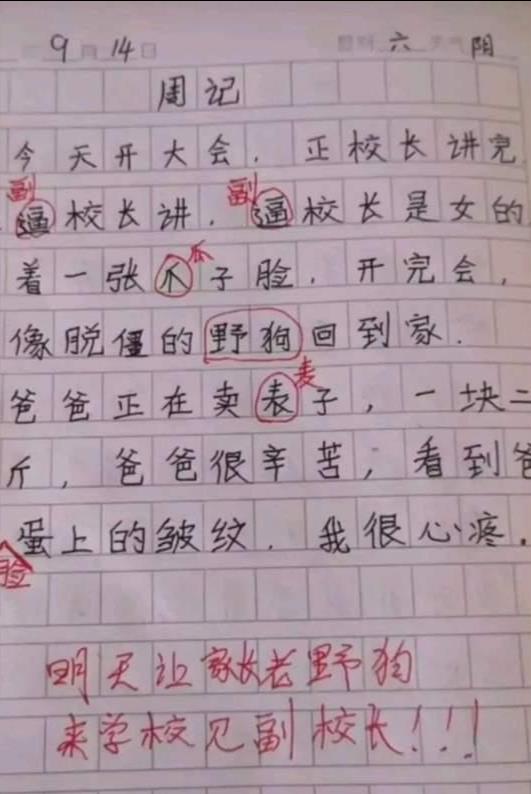 9月14日 星期 六 天气 阴
周记
今天开大会，正校长讲完
副 副
逼校长讲，逼校长是女的
瓜
着一张爪子脸，开完会，
像脱僵的野狗回到家．
麦
爸爸正在卖表子，一块二
斤，爸爸很辛苦，看到爸
蛋上的皱纹．我很心疼．
脸
明天让家长老野狗
来学校见副校长！！！